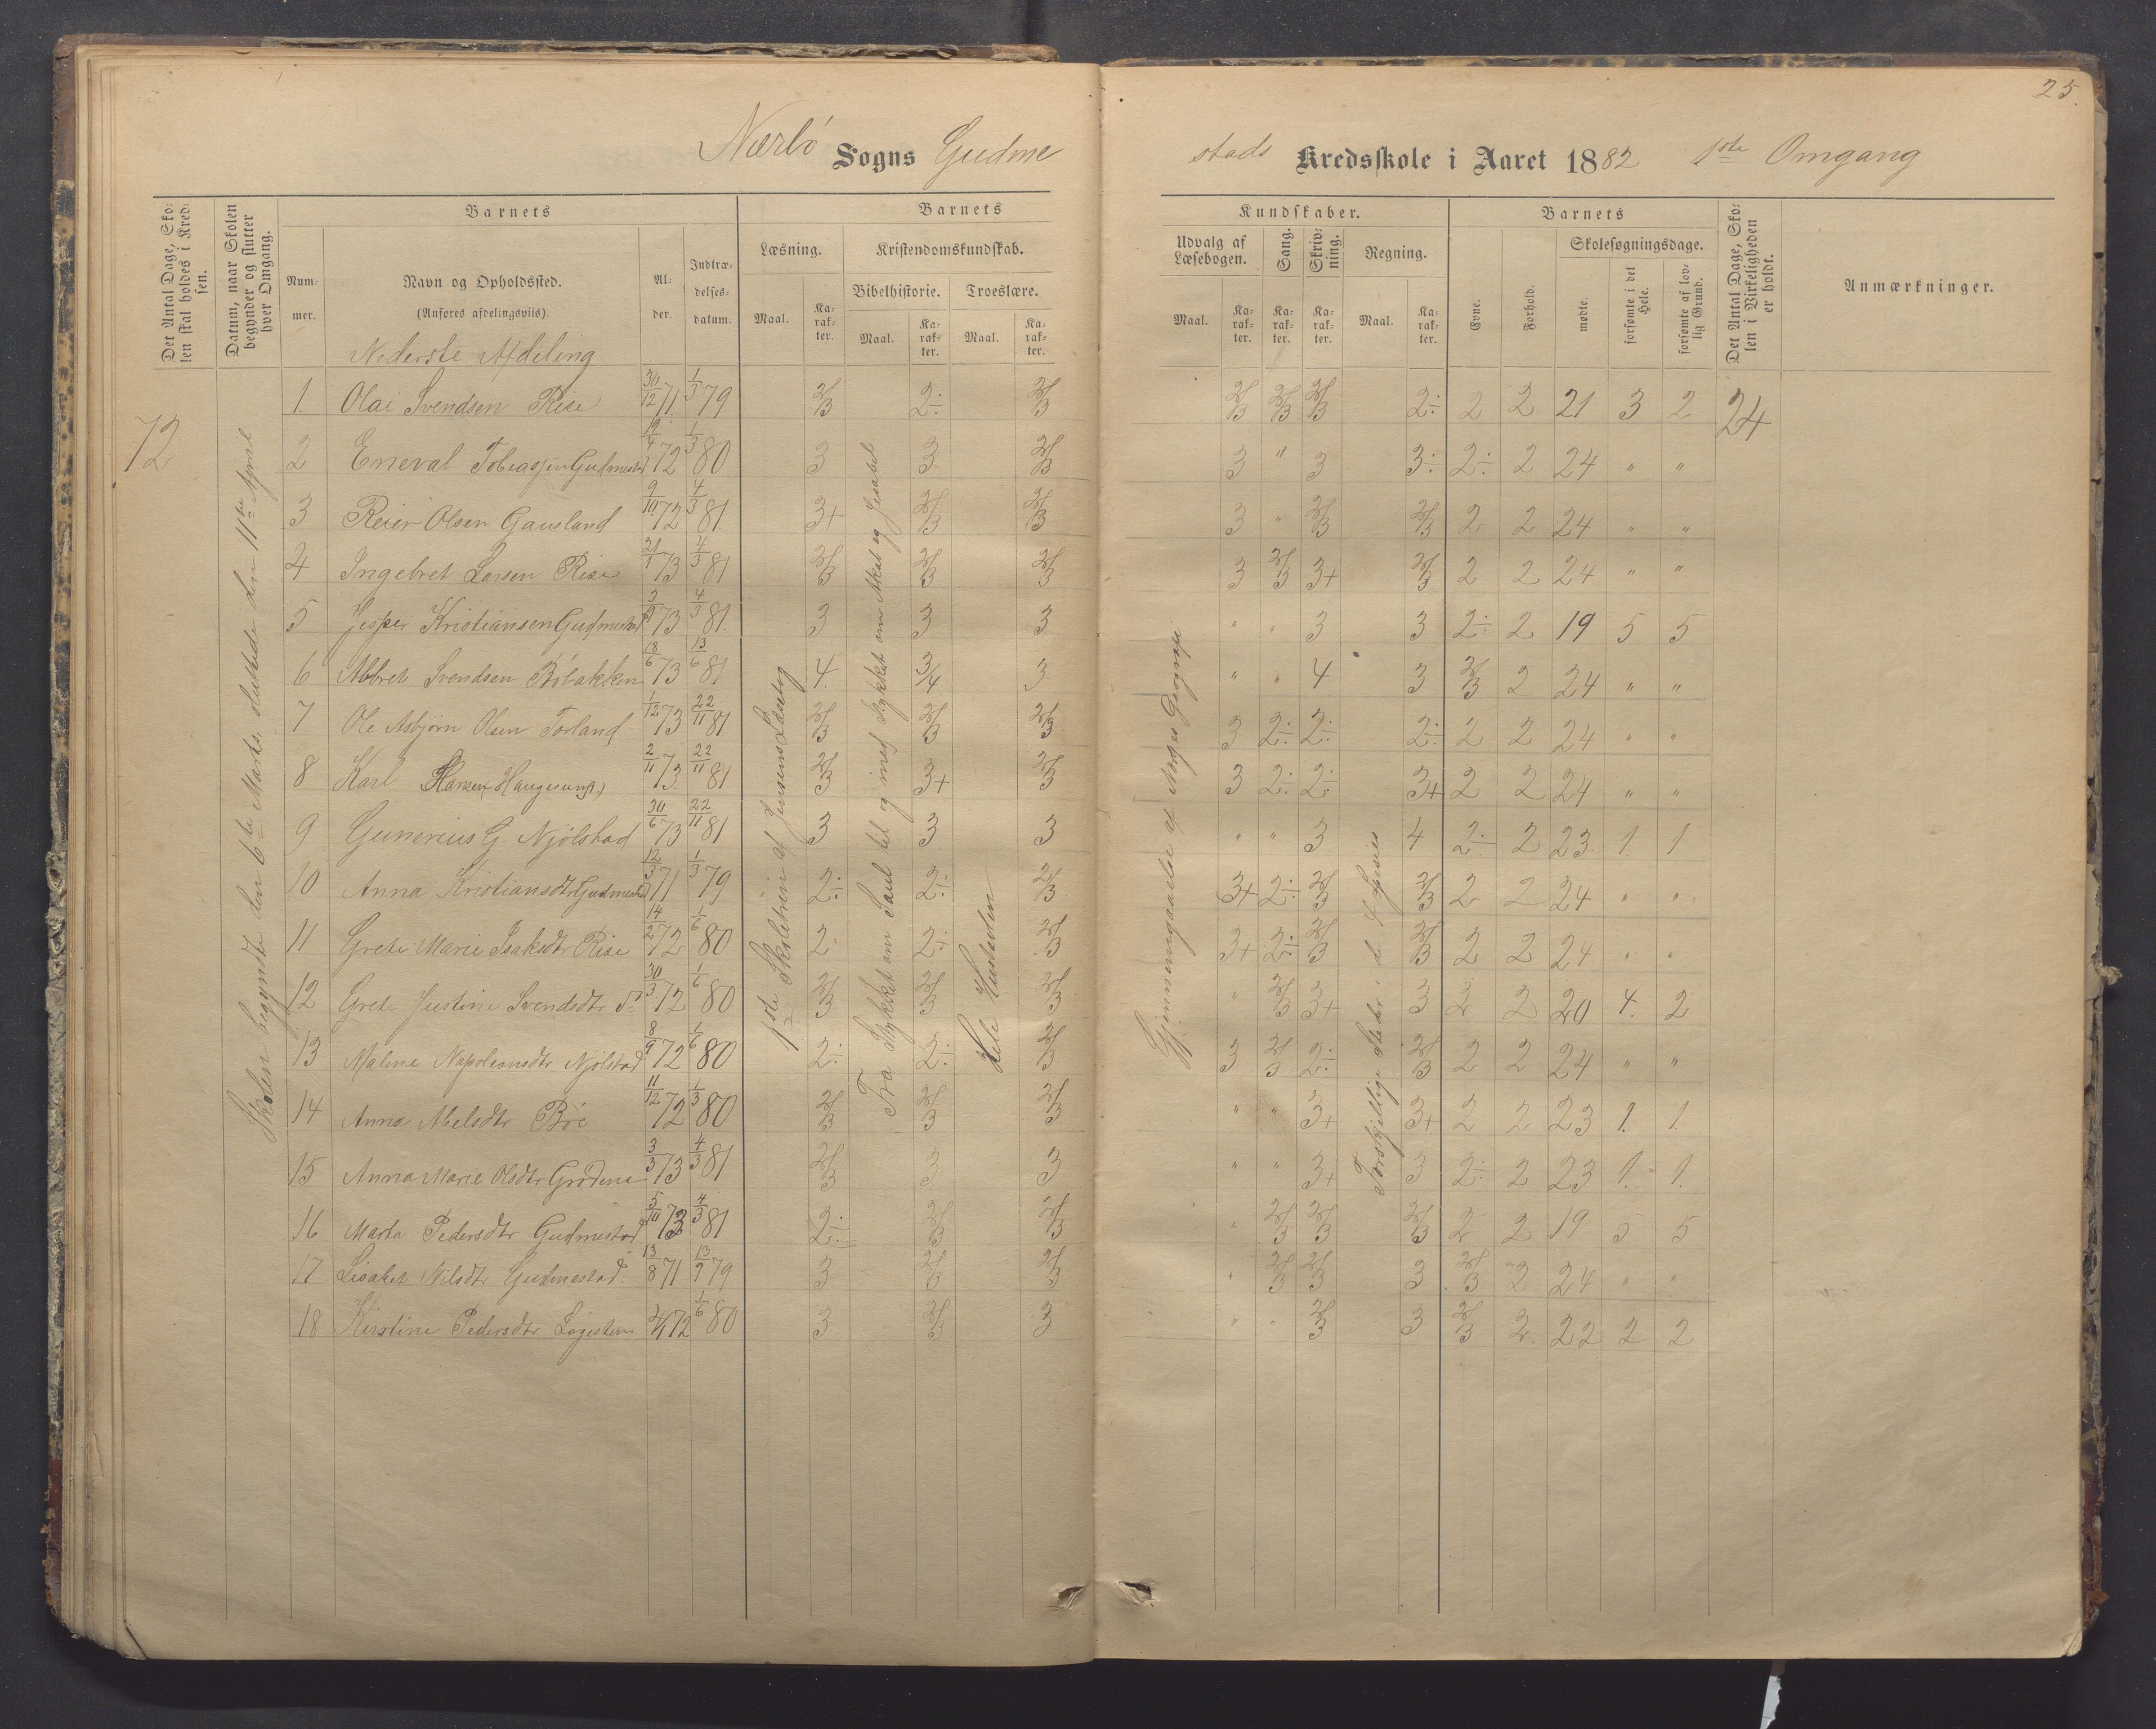 25.
Nærbö Sogns Gudme
stads Kredsskole i Aaret 1882 1ste Omgang
Det Antal Dage, Skolen skal holdes i Kredsen.
Datum, naar Skolen begynder og slutter hver Omgang.
Barnets
Nummer.
Navn og Opholdssted.
(Anføres afdelingsviis).
Nederste Afdeling
Alder.
Indtrædelsesdatum.
Barnets
Læsning.
Maal.
Karakter.
Kristendomskundskab.
Bibelhistorie.
Maal.
Karakter.
Troeslære.
Maal.
Karakter.
Kundskaber.
Udvalg af Læsebogen.
Maal.
Karakter.
Sang.
Karakter.
Skrivning.
Karakter.
Regning.
Maal.
Karakter.
Barnets
Evne.
Forhold.
Skolesøgningsdage.
mødte.
forsømte i det Hele.
forsømte af lovlig Grund.
Det Antal Dage, Skolen i Virkeligheden er holdt.
Anmærkninger.
72
Skolen begyndte den 6te Marts, sluttede den 11te April
1ste Skoletrin af Jensens Læsebog
Fra Stykket om Saul til og med Stykket om Akab og Jesabel
Hele Hustavlen
Gjennemgaaelse af Norges Geografi
Forskjellige Steder i de 4 Species
24
1. Olai Svendsen Rise 30/12 71. 1/3 79 2/3 2÷ 2/3 2/3 2/3 2/3 2÷ 2 2 21 3 2
2 Eneval Tobiassen Gudmestad 19/4 72 1/3 80 3 3 2/3 3 " 3 3÷ 2÷ 2 24 " "
3 Reier Olsen Gausland 9/10 72 4/3 81 3+ 2/3 2/3 3 " 2/3 2/3 2 2 24 " "
4 Ingebret Larsen Rise 21/1 73 4/3 81 2/3 2/3 2/3 3 2/3 3+ 2/3 2 2 24 " "
5 Jesper Kristiansen Gudmestad 3/9 73 4/3 81. 3 3 3 " " 3 3 2÷ 2 19 5 5
6 Abbret Svendsen Böbakken 18/6 73 13/6 81 4. 3/4 3 " " 4 3 2/3 2 24 " "
7 Ole Asbjörn Olsen Torland 1/12 73 22/11 81 2/3 2/3 2/3 3 2÷ 2÷ 2÷ 2 2 24 " "
8 Karl Hansen (Haugesund) 2/11 73. 22/11 81 2/3 3+ 2/3 3 2÷ 2÷ 3+ 2 2 24 " "
9 Gunerius G Njölstad 30/6 73 22/11 81 3 3 3 " " 3 4 2÷ 2 23 1. 1
10 Anna Kristiansdtr Gudmestad 12/3 71 1/3 79 2÷ 2÷ 2/3 3+ 2÷ 2/3 2/3 2 2 24 " "
11 Grete Marie Isaksdtr Rise 14/2 72 1/6 80 2 2÷ 2/3 3+ 2÷ 2/3 2/3 2 2 24 " "
12 Grete Justine Svendsdtr do 30/3 72 1/6 80 2/3 2/3 2/3 " 2/3 3+ 3 2 2 20 4. 2
13 Malene Napoleonsdtr Njölstad 8/9 72 1/6 80 2÷ 2÷ 2/3 3 2/3 2÷ 2/3 2 2 24 " "
14 Anna Abelsdtr Bö 11/12 72 1/3 80 2/3 2/3 2/3 " " 3+ 3+ 2 2 23 1. 1.
15 Anna Marie Olsdtr Grödem 3/3 73 4/3 81 2/3 3 3 " " 3+ 3 2÷ 2 23 1. 1.
16 Marta Pedersdtr Gudmestad 5/10 73 4/3 81 2÷ 2/3 2/3 " 2/3 2/3 2/3 2 2 19 5 5
17 Lisabet Nilsdtr Gudmestad 13/8 71 13/9 79 3 2/3 2/3 " 2/3 2/3 3 2/3 2 24 " "
18 Kirstine Pedersdtr 72 1/6 80 3 2/3 3 " " 2/3 3 2/3 2 22 2 2